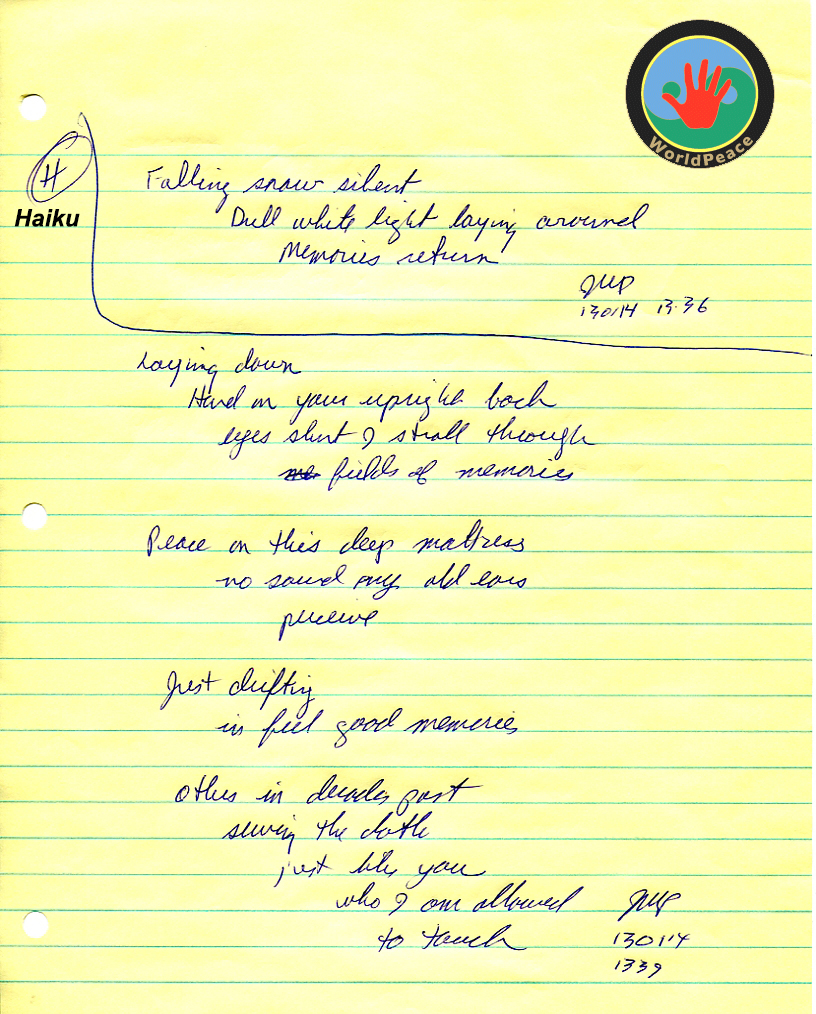 WorldPeace
H
Haiku
Falling snow silent
Dull white light laying around
Memories return
JWP
130114 13:36
Laying down
Hand on your upright back
eyes shut I stroll through
fields of memories
Peace on this deep mattress
no sound my old ears
perceive
Just drifting
in feel good memories
others in decades past
sewing the cloth
just like you
who I am allowed
to touch
JWP
130114
1339